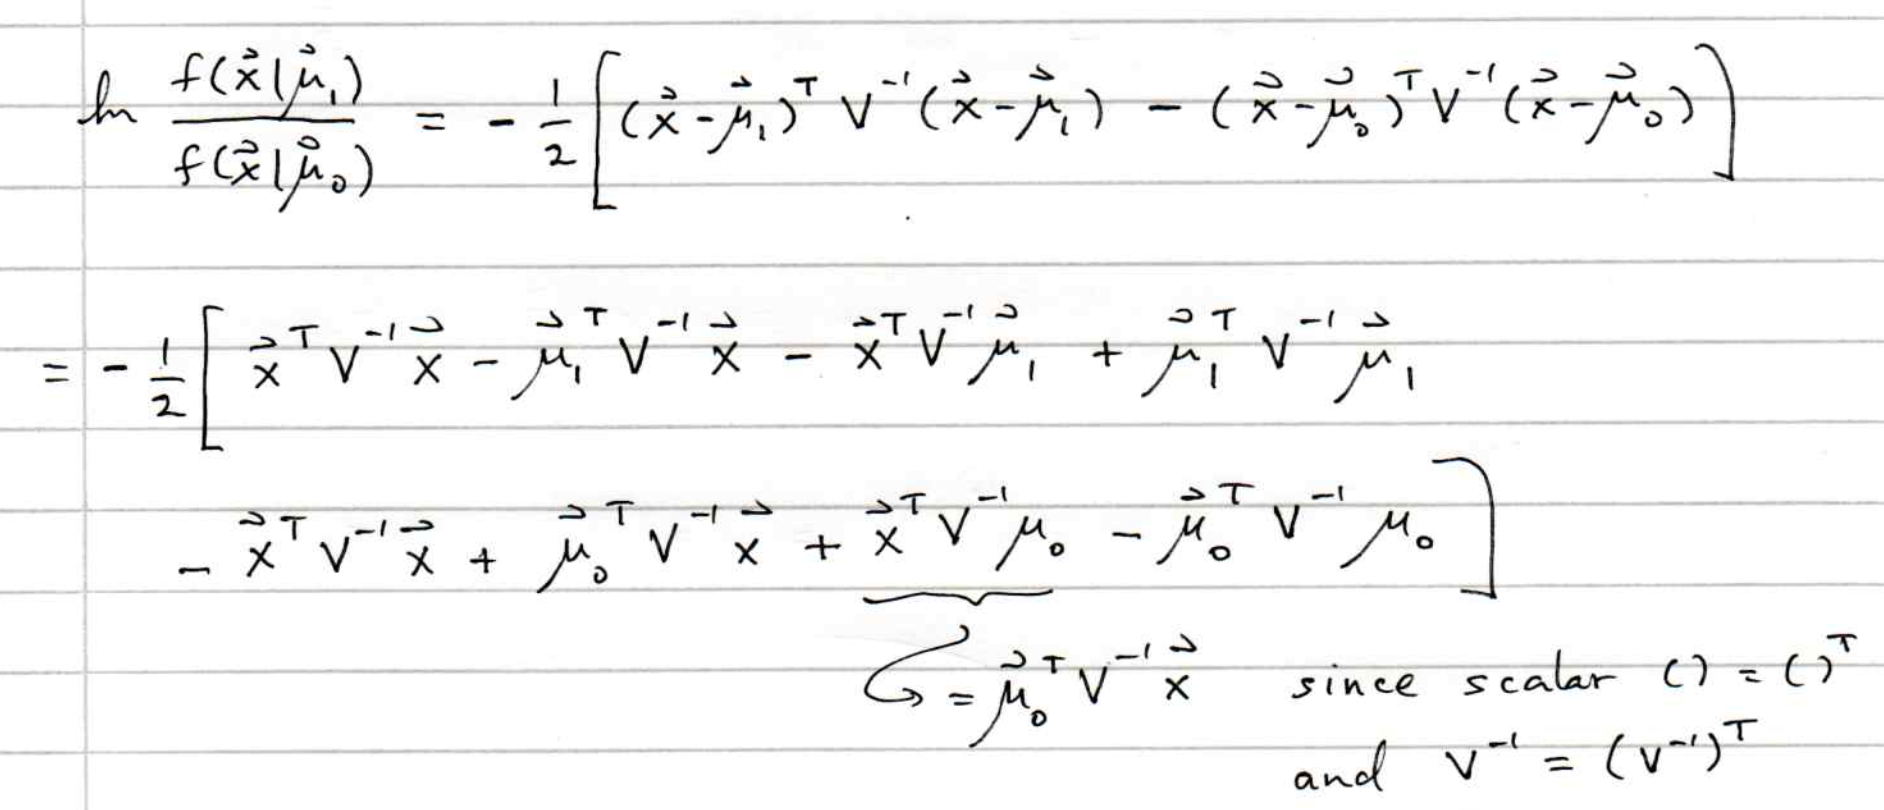 ln f(x⃗|μ⃗₁) / f(x⃗|μ⃗₀) = - 1/2 [ (x⃗-μ⃗₁)ᵀ V⁻¹ (x⃗-μ⃗₁) - (x⃗-μ⃗₀)ᵀ V⁻¹ (x⃗-μ⃗₀) ]
= - 1/2 [ x⃗ᵀ V⁻¹ x⃗ - μ⃗₁ᵀ V⁻¹ x⃗ - x⃗ᵀ V⁻¹ μ⃗₁ + μ⃗₁ᵀ V⁻¹ μ⃗₁
- x⃗ᵀ V⁻¹ x⃗ + μ⃗₀ᵀ V⁻¹ x⃗ + x⃗ᵀ V⁻¹ μ₀ - μ⃗₀ᵀ V⁻¹ μ₀ ]
↪ = μ⃗₀ᵀ V⁻¹ x⃗ since scalar () = ()ᵀ
and V⁻¹ = (V⁻¹)ᵀ